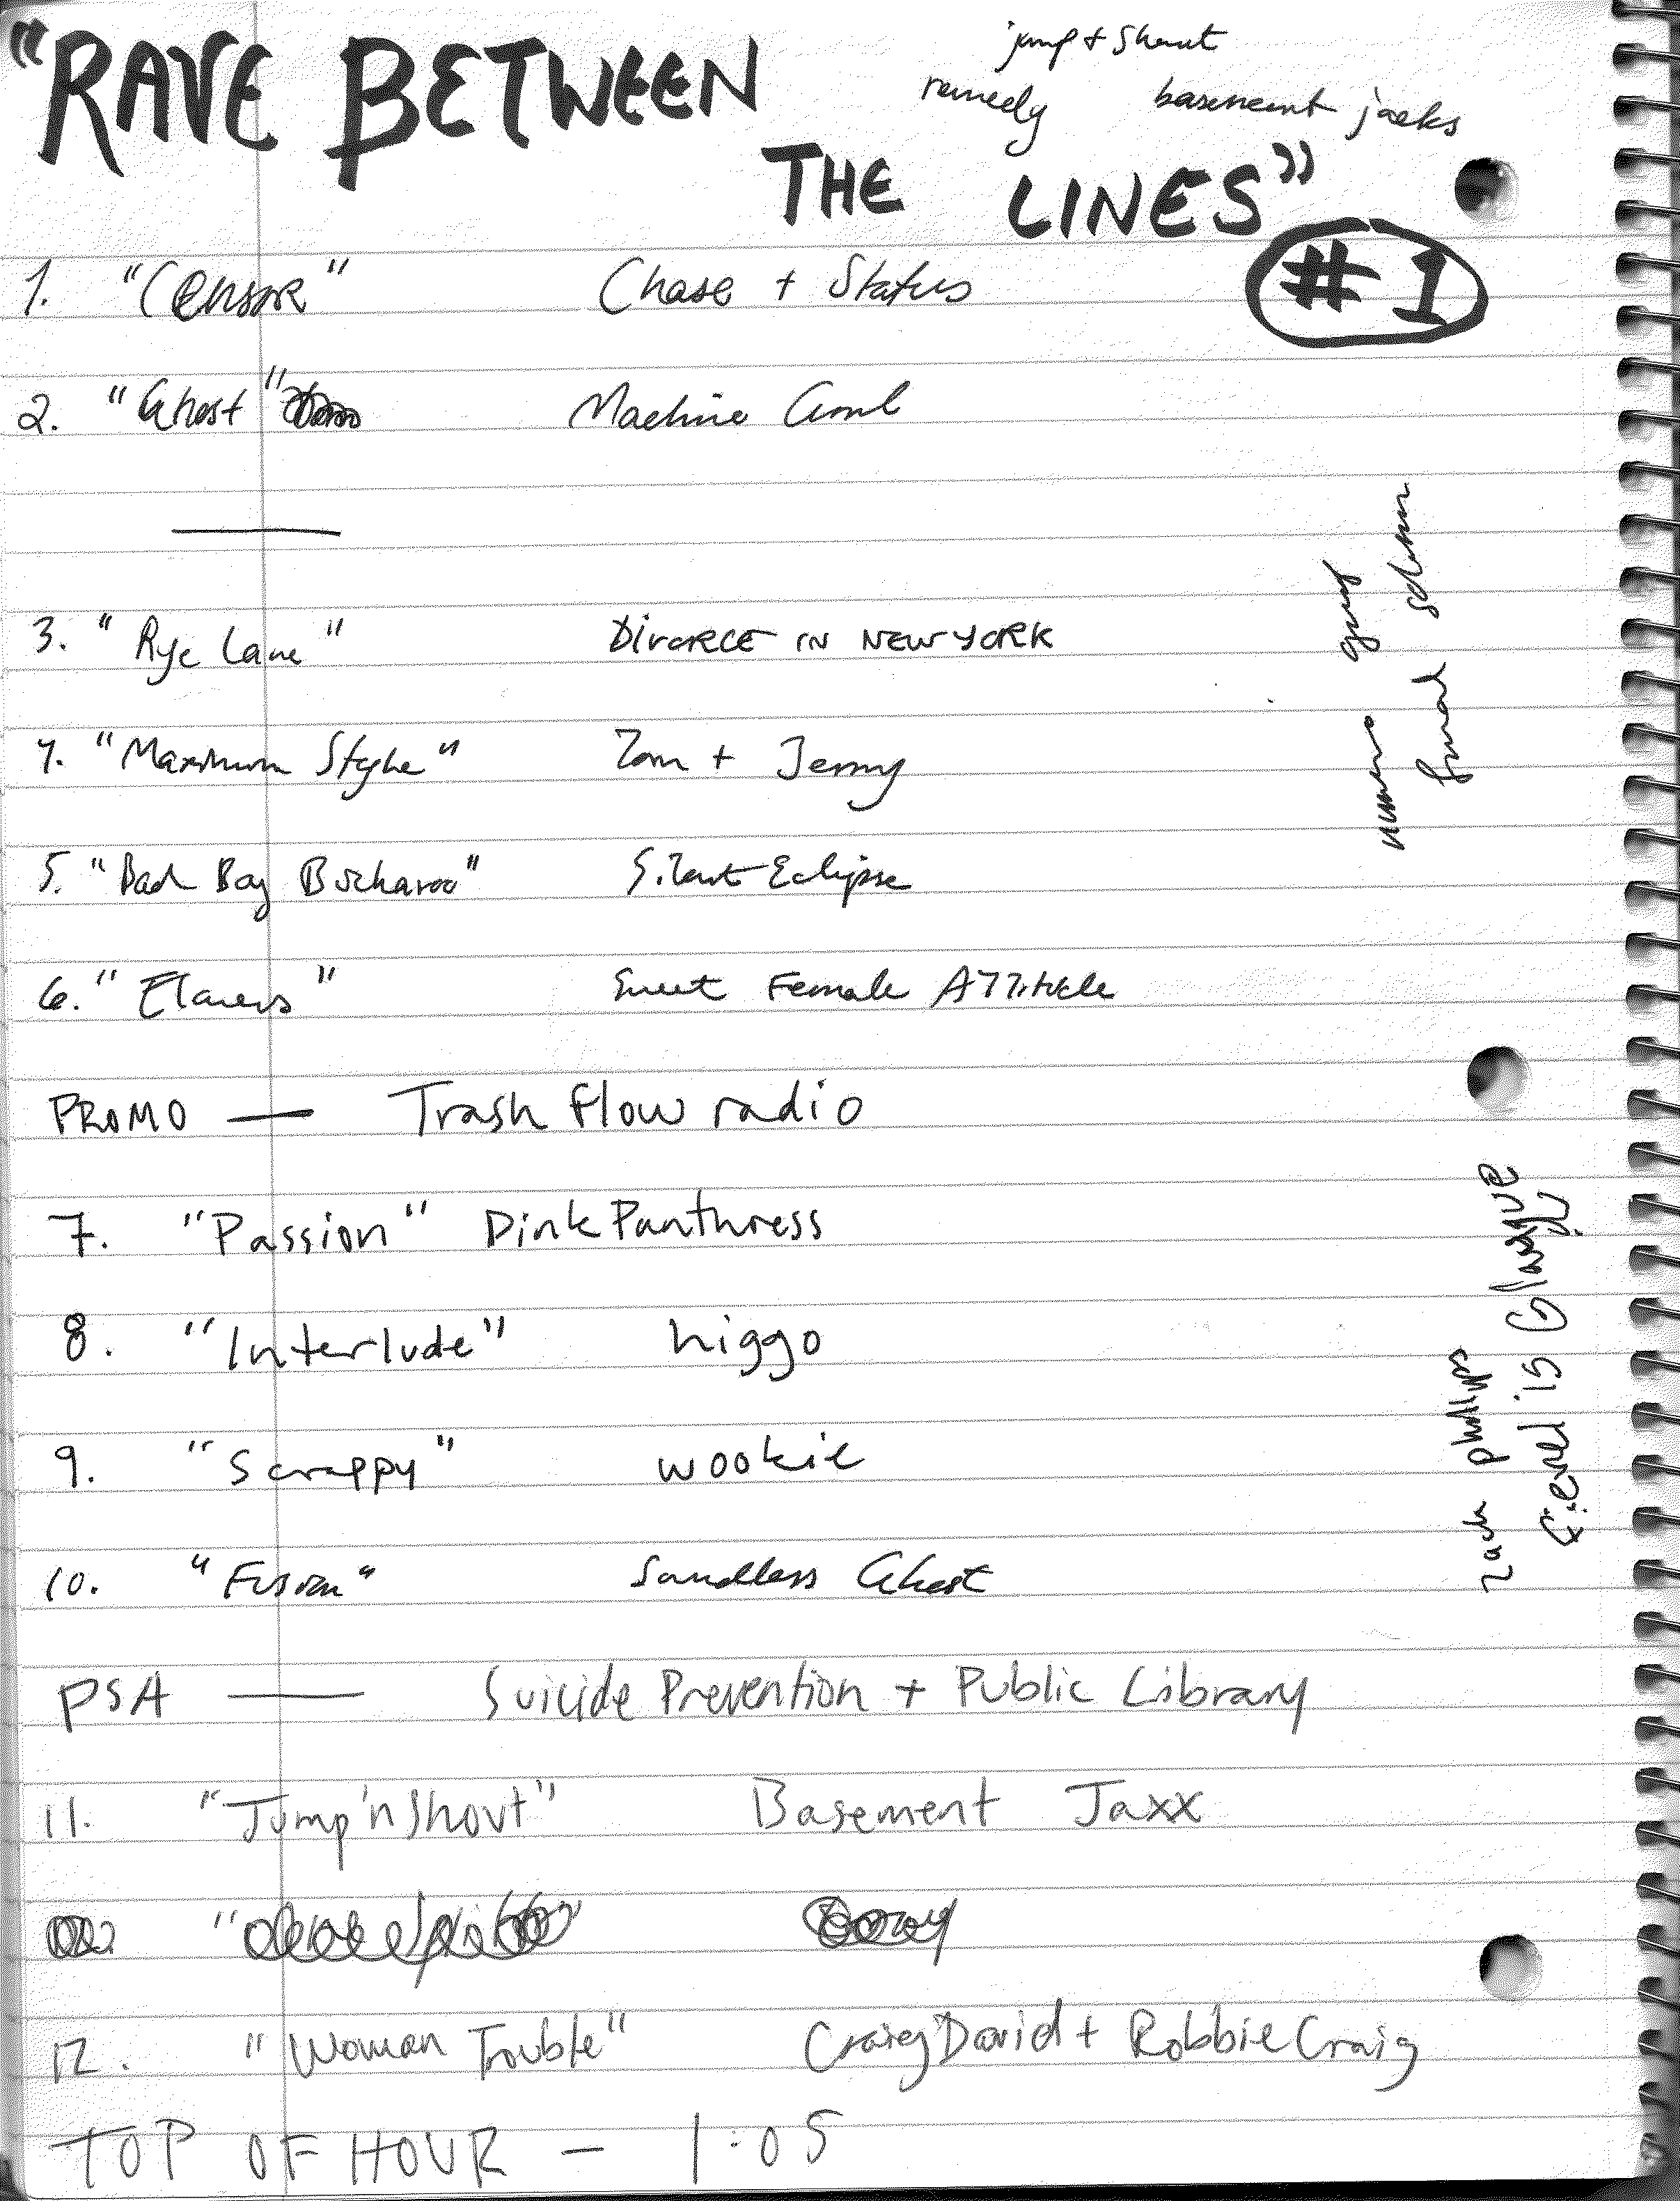 "RAVE BETWEEN
THE LINES"
jump + Shout
remedy basement jacks
#1
1. "Censor" Chase + Status
2. "Ghost" Machine Girl
3. "Rye Lane" DIVORCE IN NEW YORK
4. "Maximum Style" Tom + Jerry
5. "Bad Boy Buckaroo" Silent Eclipse
6. "Flowers" Sweet Female Attitude
PROMO — Trash flow radio
7. "Passion" PinkPanthress
8. "Interlude" higgo
9. "Scrappy" wookie
10. "Fusion" Soundless Ghost
PSA — Suicide Prevention + Public Library
11. "Jump 'n Shout" Basement Jaxx
12. "Woman Trouble" Craig David + Robbie Craig
TOP OF HOUR — 1:05
final solemn
zach phillips
Fievel is Glauque